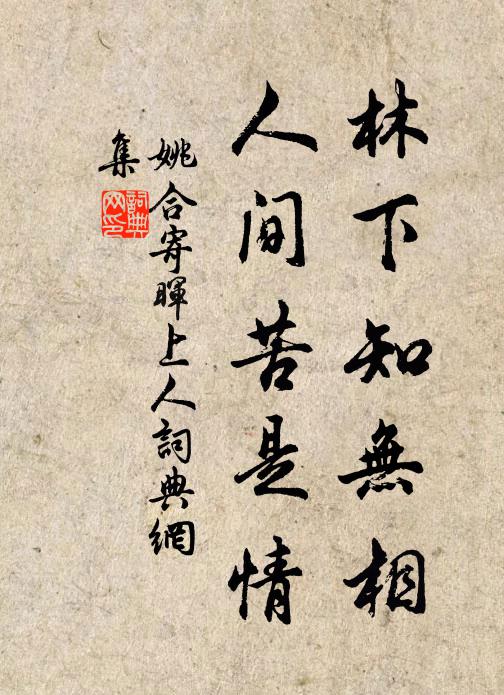 林下知無相
人间苦是情
姚合寄暉上人詞典網
集
詞典网印